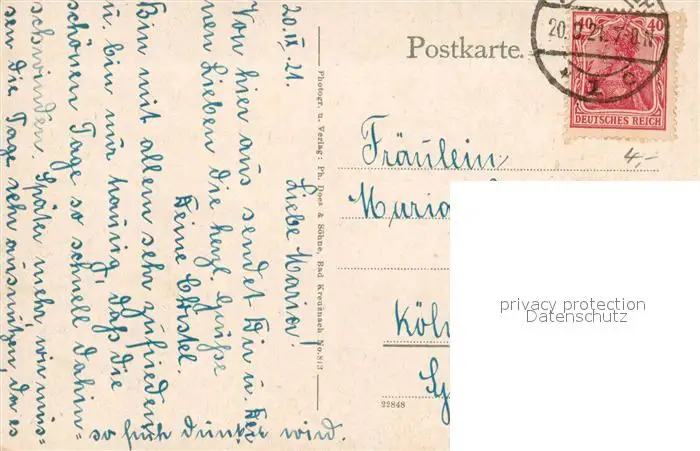 Postkarte.
20. 9. 21. 7-8 N
40 40
DEUTSCHES REICH
4,-
20. IX. 21.
Liebe Maria!
Von hier aus sendet Dir u. Dei-
nen Lieben die herzl. Grüße
Deine Christel.
Bin mit allem sehr zufrieden
u. bin nur traurig, daß die
schönen Tage so schnell dahin-
schwinden. Später mehr, wir müs-
sen die Tage sehr ausnützen, da es
so früh dunkel wird.
Photogr. u. Verlag: Ph. Does & Söhne, Bad Kreuznach No. 813
Fräulein
Maria
Köln
22848
privacy protection
Datenschutz